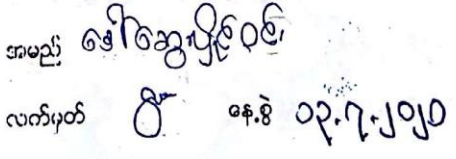 အမည် ဒေါ်ဆွေလှိုင်ဝင်း
လက်မှတ် နေ့စွဲ ၁၃.၇.၂၀၂၀